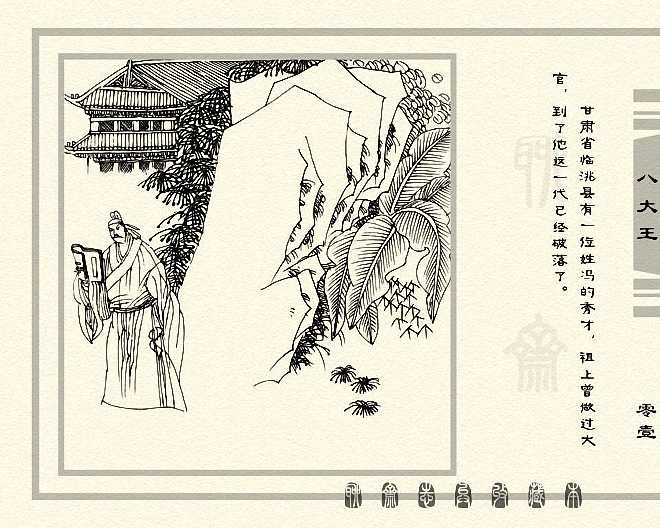 八大王
零壹
甘肃省临洮县有一位姓冯的秀才，祖上曾做过大
官，到了他这一代已经破落了。